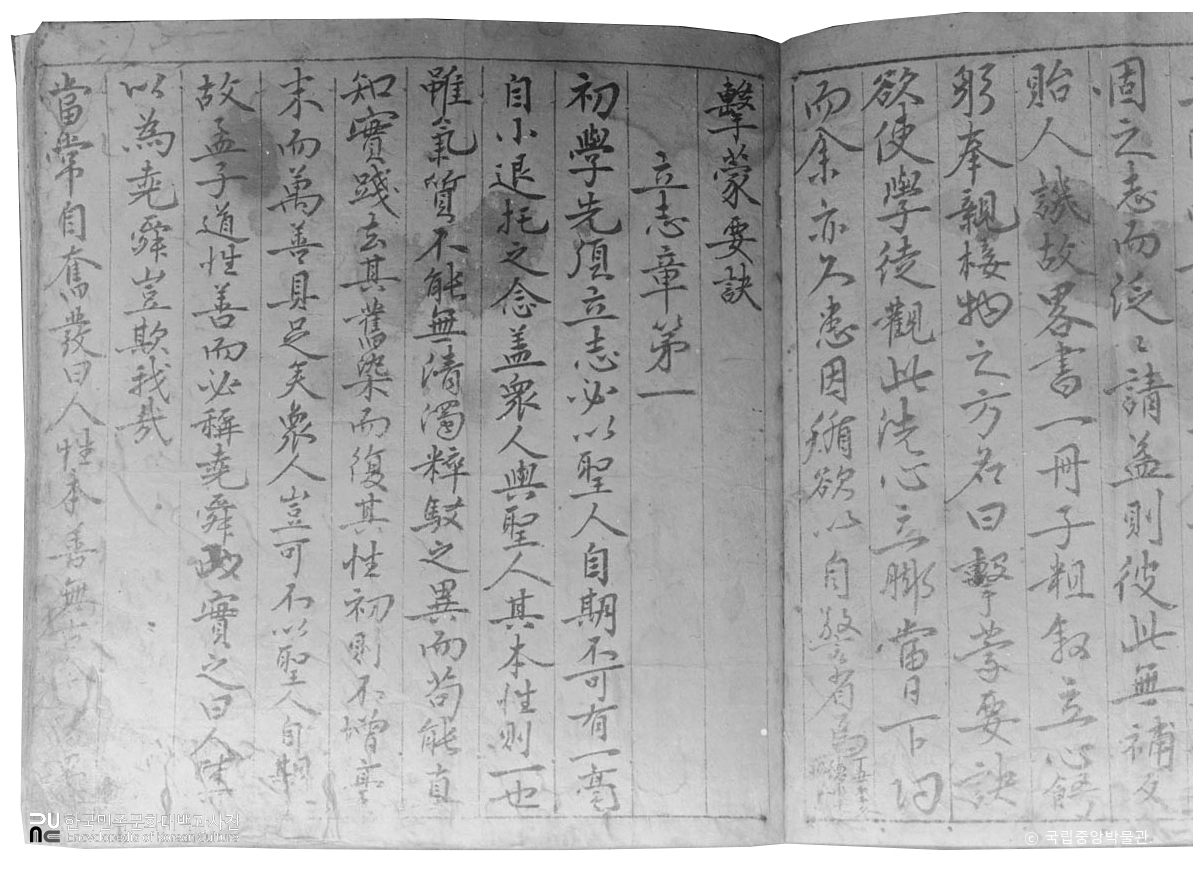 固之志而泛〻請益則彼此無補反
貽人譏故畧書一冊子粗敘立心飭
躬奉親接物之方名曰擊蒙要訣
欲使學徒觀此洗心立脚當日下功
而余亦久患因循欲以自警省焉
擊蒙要訣
立志章第一
初學先須立志必以聖人自期不可有一毫
自小退托之念盖衆人與聖人其本性則一也
雖氣質不能無清濁粹駁之異而苟能真
知實踐去其舊染而復其性初則不增毫
末而萬善具足矣衆人豈可不以聖人自期
故孟子道性善而必稱堯舜實之曰人皆
以為堯舜豈欺我哉
當常自奮發曰人性本善無古
한국민족문화대백과사전
Encyclopedia of Korean Culture
© 국립중앙박물관